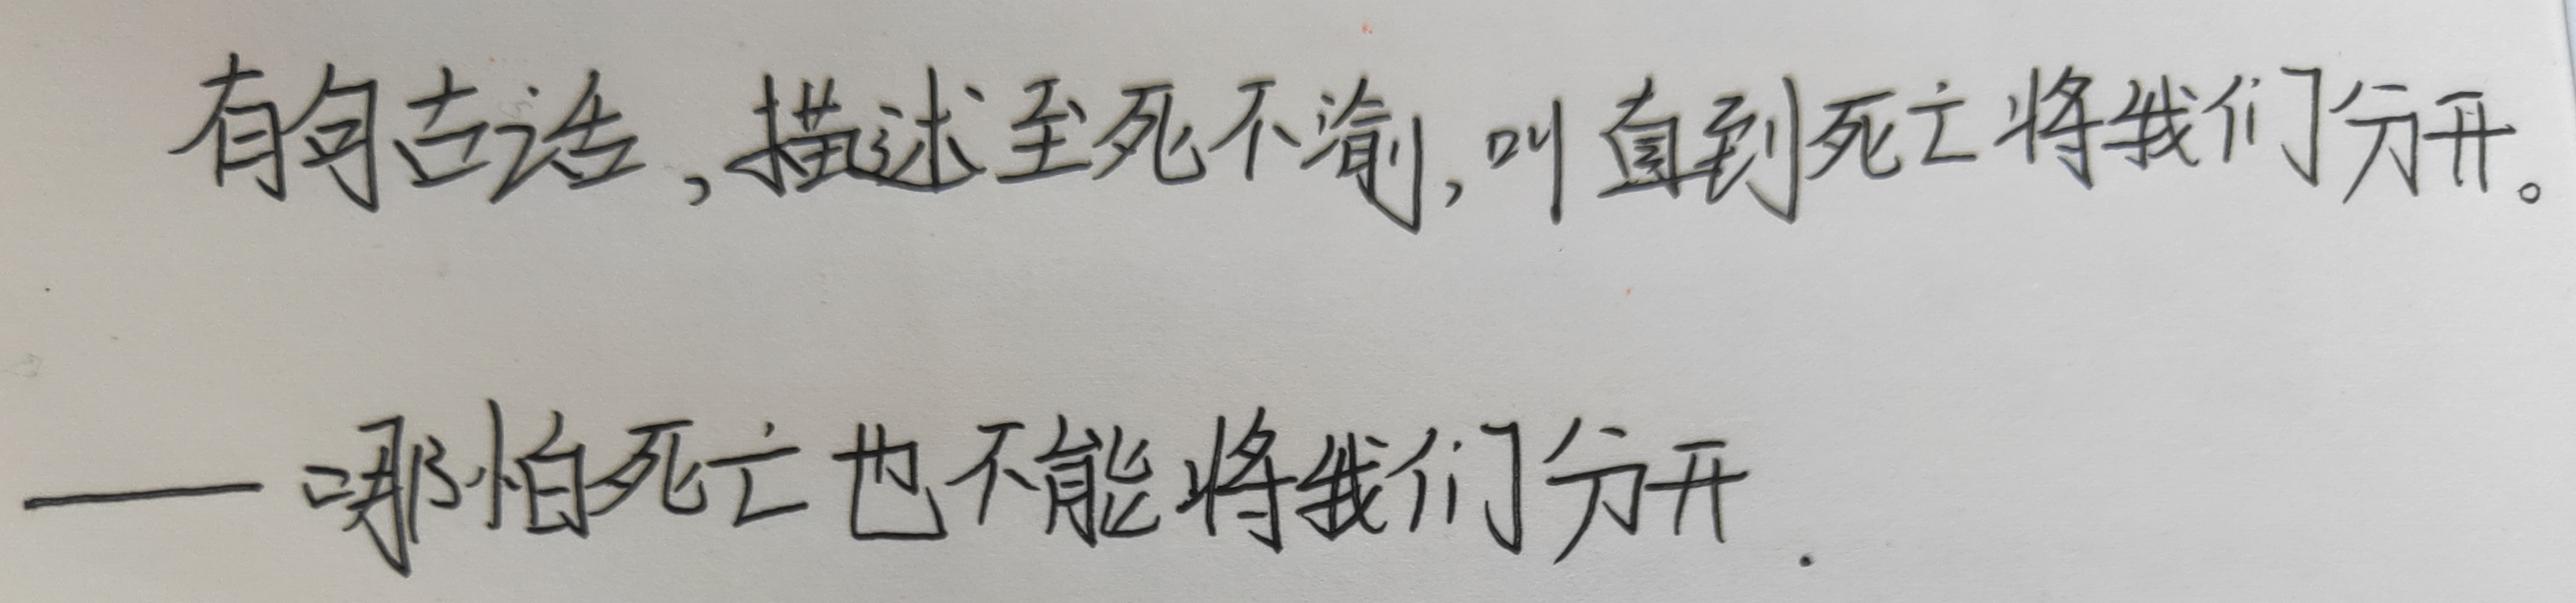 有句古话,描述至死不渝,叫直到死亡将我们分开。
——哪怕死亡也不能将我们分开.